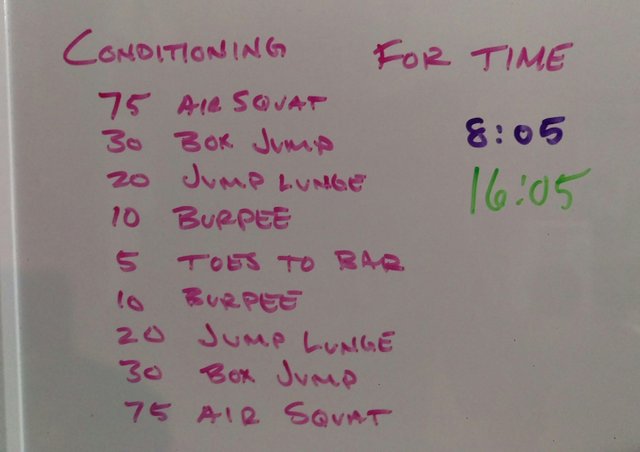 CONDITIONING FOR TIME
75 AIR SQUAT
30 BOX JUMP 8:05
20 JUMP LUNGE 16:05
10 BURPEE
5 TOES TO BAR
10 BURPEE
20 JUMP LUNGE
30 BOX JUMP
75 AIR SQUAT